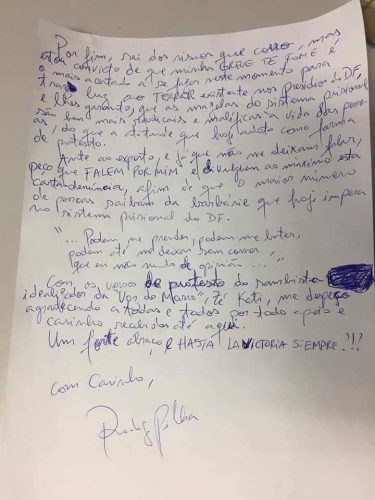 Por fim, sei dos riscos que corro, mas
estou convicto de que minha GREVE DE FOME é
o mais acertado a se fazer neste momento para
trazer luz ao TERROR existente nos presídios do DF,
e lhes garanto, que as mazelas do sistema prisional
são bem mais radicais e maléficas à vida das pesso-
as, do que a atitude que hoje adoto como forma
de protesto.
Ante ao exposto, e já que não me deixam falar,
peço que FALEM POR MIM e divulguem ao máximo esta
carta-denúncia, afim de que o maior número
de pessoas saibam da barbárie que hoje impera
no sistema prisional do DF.
"... Podem me prender, podem me bater,
podem até me deixar sem comer,
que eu não mudo de opinião..."
Com os versos de protesto do sambista
idealizador da "Voz do Morro" Zé Keti, me despeço
agradecendo a todas e todos por todo apoio e
carinho recebidos até aqui.
Um forte abraço, e HASTA LA VICTORIA SIEMPRE!!!
Com Carinho,
Rodrigo Pilha